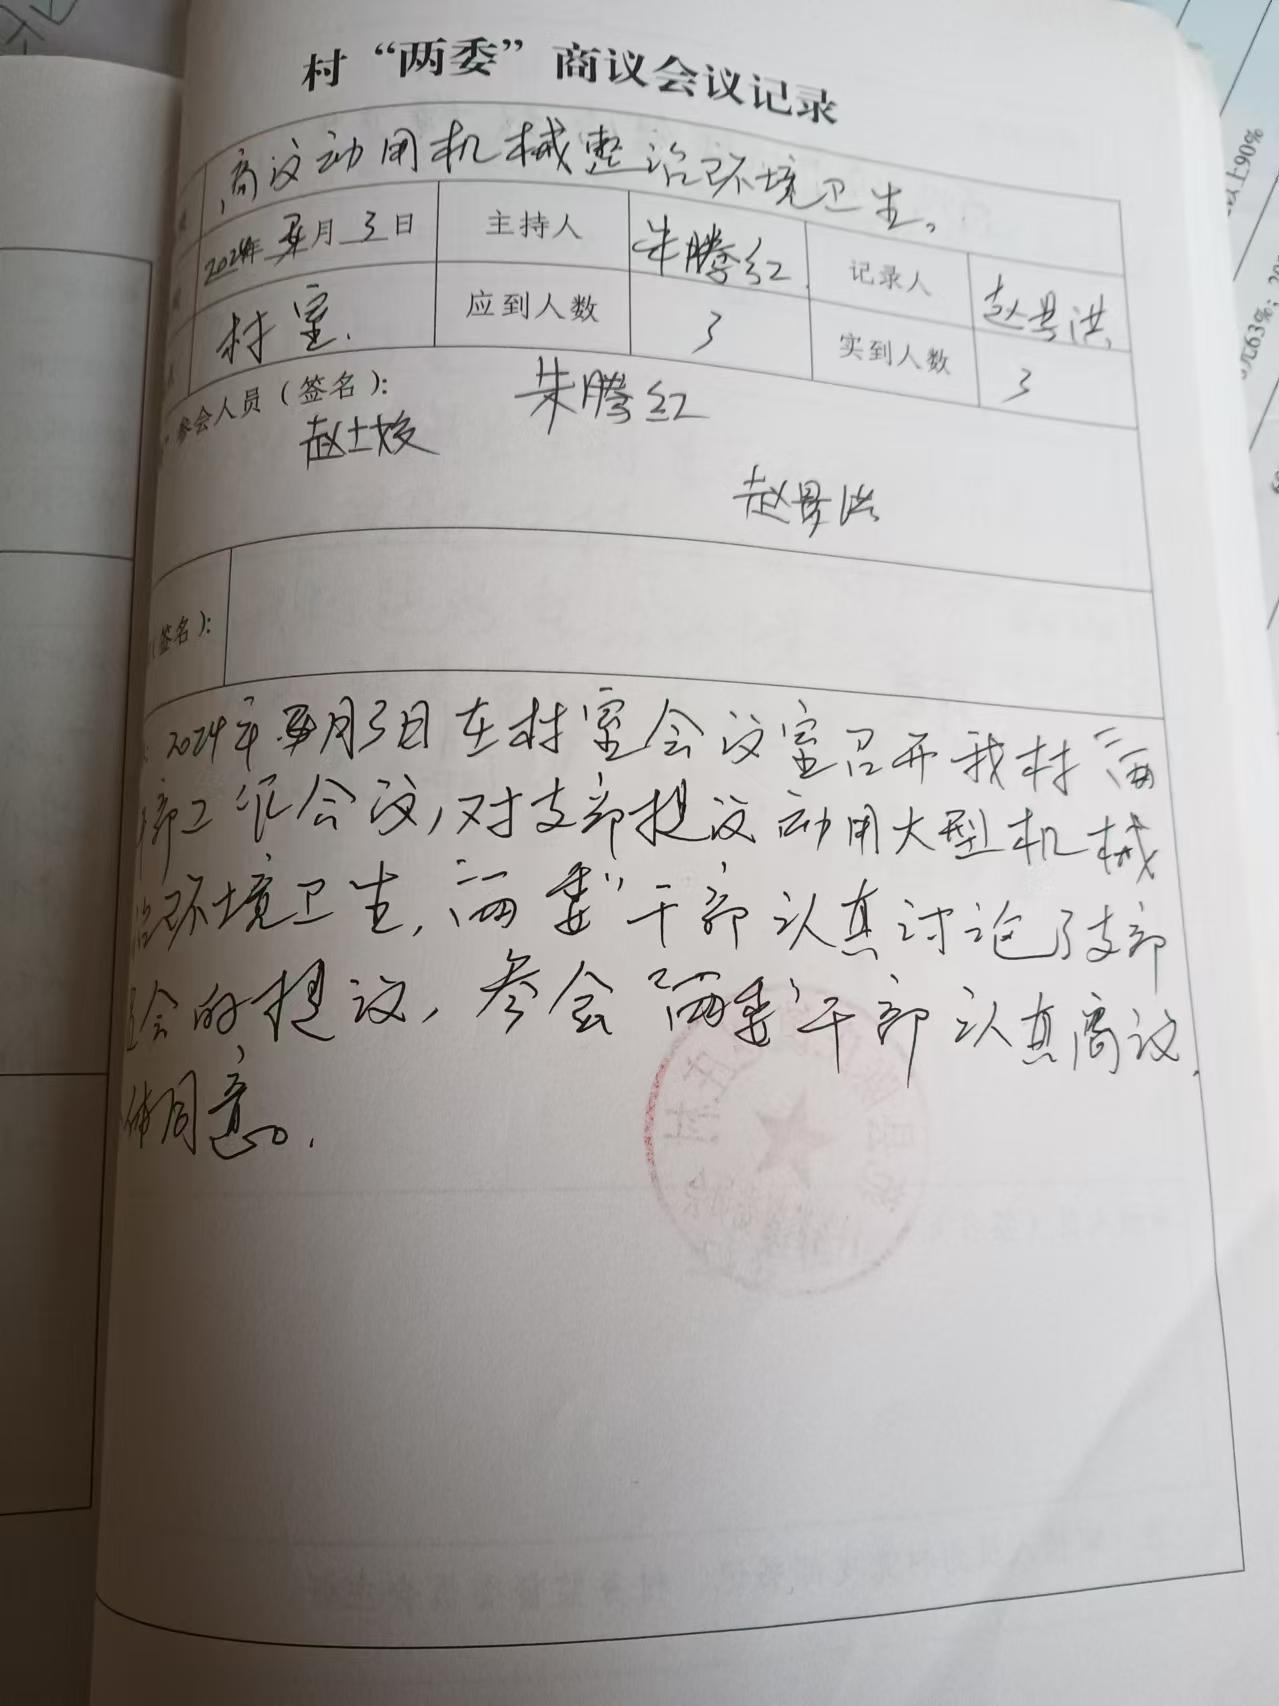 村“两委”商议会议记录
商议动用机械整治环境卫生。
2024年 月 3 日 主持人 朱腾红 记录人 赵景洪
村室. 应到人数 3 实到人数 3
参会人员(签名): 朱腾红
赵士俊
赵景洪
(签名):
2024年 月3日在村室会议室召开我村“两
部工作会议,对支部提议动用大型机械
治环境卫生,“两委”干部认真讨论了支部
会的提议,参会“两委”干部认真商议,
体同意。
以上90%
63%;